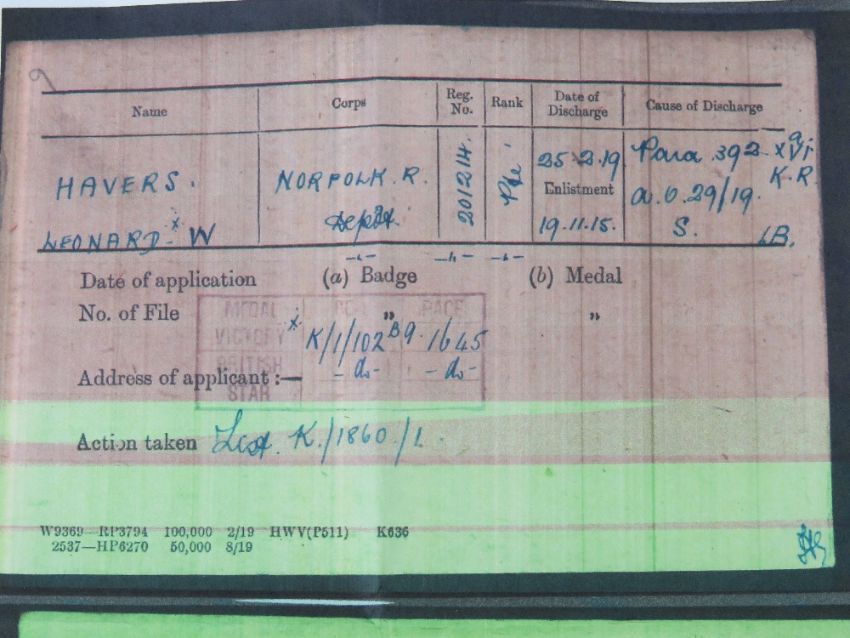 Name Corps Reg. No. Rank Date of Discharge Cause of Discharge
HAVERS. NORPOLK. R. 201214. Pte. 25.2.19 Para 392 XVI
Enlistment K.R.
LEONARD x W Depot 19.11.15. a.o. 29/19. S.
Date of application (a) Badge (b) Medal
No. of File " "
MEDAL PAGE
VICTORY x K/1/102 B9 1645
BRITISH -do- -do-
Address of applicant :—
STAR
Action taken List K./1860/1.
W9369—RP3794 100,000 2/19 HWV(P511) K636
2537—HP6270 50,000 8/19